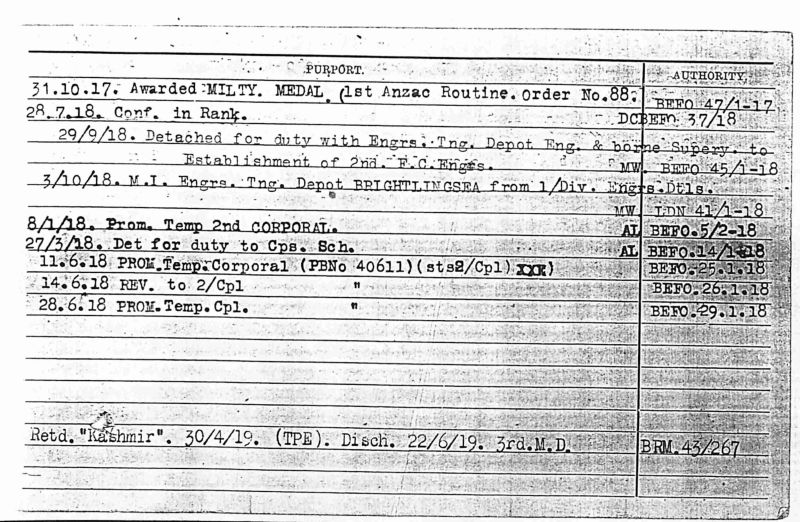 PURPORT. AUTHORITY.
31.10.17. Awarded MILTY. MEDAL. (1st Anzac Routine. Order No.88. BEFO 47/1-17
28.7.18. Conf. in Rank. DC BEFO 37/18
29/9/18. Detached for duty with Engrs. Tng. Depot Eng. & borne Supery. to
Establishment of 2nd. F.C.Engrs. MW. BEFO 45/1-18
3/10/18. M.I. Engrs. Tng. Depot BRIGHTLINGSEA from 1/Div. Engrs.Dtls.
MW. LDN 41/1-18
8/1/18. Prom. Temp 2nd CORPORAL. AL BEFO.5/2-18
27/3/18. Det for duty to Cps. Sch. AL BEFO.14/1-18
11.6.18 PROM.Temp.Corporal (PBNo 40611)(sts2/Cpl) BEFO.25.1.18
14.6.18 REV. to 2/Cpl " BEFO.26.1.18
28.6.18 PROM.Temp.Cpl. " BEFO.29.1.18
Retd. "Kashmir". 30/4/19. (TPE). Disch. 22/6/19. 3rd.M.D. BRM.43/267